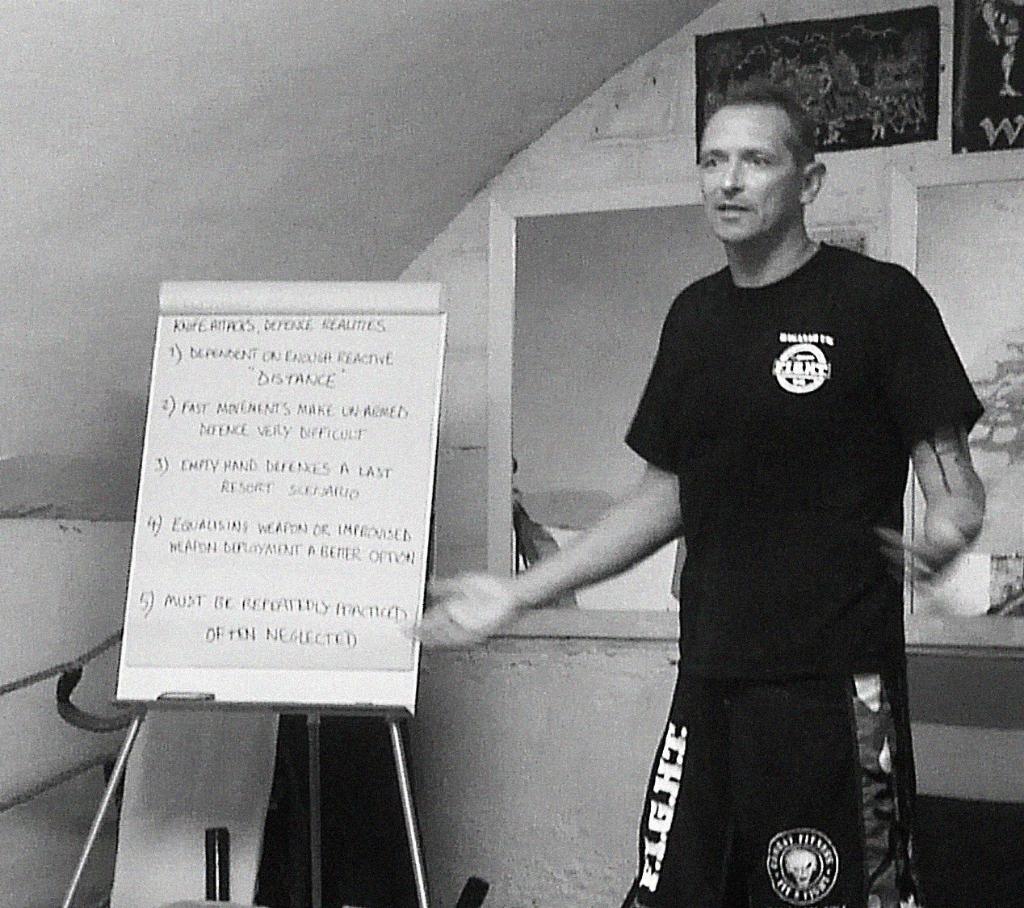 KNIFE ATTACKS, DEFENCE REALITIES
1) DEPENDENT ON ENOUGH REACTIVE
"DISTANCE"
2) FAST MOVEMENTS MAKE UN-ARMED
DEFENCE VERY DIFFICULT
3) EMPTY HAND DEFENCES A LAST
RESORT SCENARIO
4) EQUALISING WEAPON OR IMPROVISED
WEAPON DEPLOYMENT A BETTER OPTION
5) MUST BE REPEATEDLY PRACTICED
OFTEN NEGLECTED
W
F.I.G.H.T.
COMBAT FITNESS